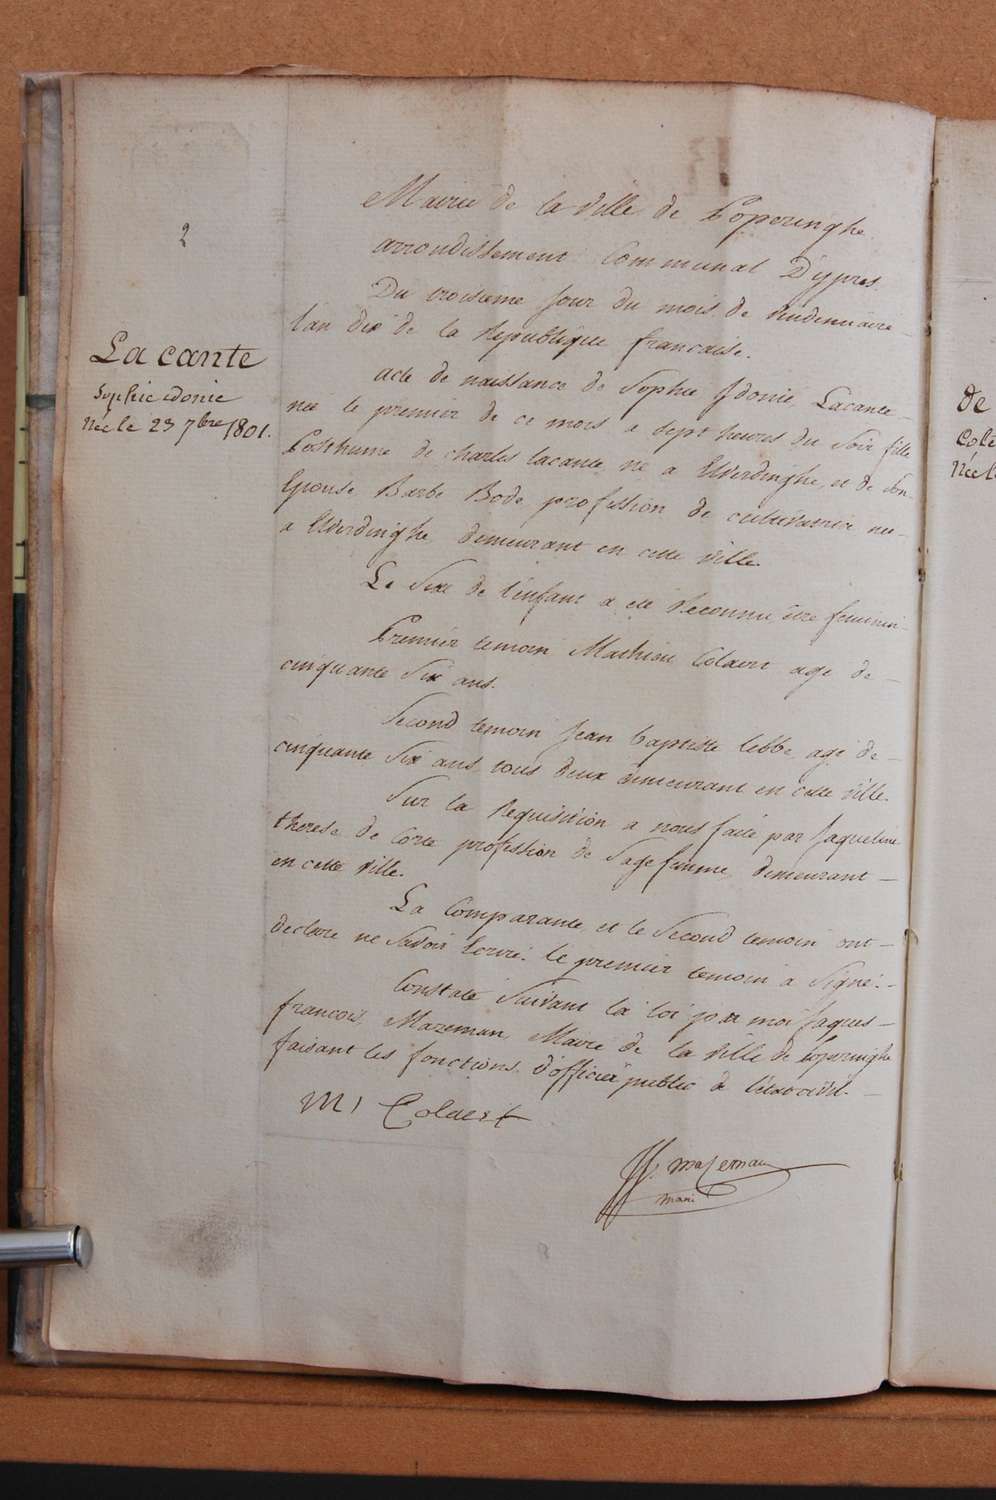 2
La cante
Sophie idonie
Née le 23 7bre 1801.
Mairie de la ville de Poperinghe
arrondissement Communal D'ypres
Du troisieme jour du mois de vendemiaire
l'an dix de la Republique francaise.
acte de naissance de Sophie Idonie Lacante
née le premier de ce mois a sept heures du soir fille
Posthume de charles lacante né a Elverdinghe, et de son
Epouse Barbe Bode profession de cultivatrice née
a Elverdinghe demeurant en cette ville.
Le Sexe de l'enfant a eté Reconnu être feminin
Premier temoin Mathieu Colaert agé de
cinquante Six ans.
Second temoin Jean baptiste lebbe agé de
cinquante Six ans tous deux demeurant en cette ville.
Sur la Requisition a nous faite par Jaqueline
therese de Corte profession de Sagefemme demeurant
en cette ville.
La Comparante et le Second temoin ont
declaré ne Savoir Ecrire. le premier temoin a Signé.
Constaté Suivant la loi par moi Jaques
francois Mazeman Maire de la ville de Poperinghe
faisant les fonctions d'officier public de l'état civil.
M Colaert
JF. mazeman
maire
de
Cole
Née l